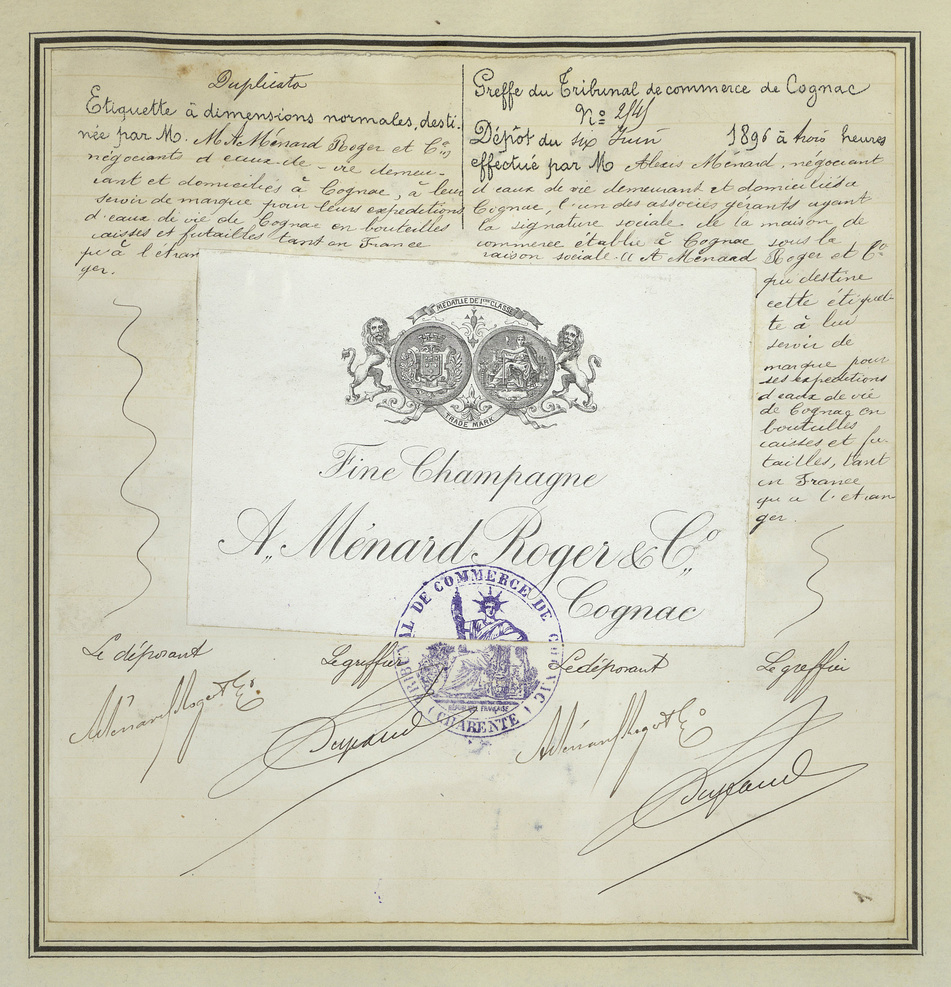 Duplicata
Etiquette à dimensions normales, desti-
née par M. M A Ménard Roger et Cie,
négociants d'eaux-de-vie demeu-
rant et domiciliés à Cognac, à leur
servir de marque pour leurs expeditions
d'eaux de vie de Cognac en bouteilles
caisses et futailles tant en France
qu'à l'étran
ger.
Greffe du Tribunal de commerce de Cognac
Nº
Dépôt du six Juin 1896 à trois heures
effectué par M Alexis Ménard, négociant
d'eaux de vie demeurant et domicilié à
Cognac, l'un des associés gérants ayant
la signature sociale de la maison de
commerce établie à Cognac sous la
raison sociale "A Ménard Roger et Cº
qui destine
cette étiquet-
te à lui
servir de
marque pour
ses expeditions
d'eaux de vie
de Cognac en
bouteilles
caisses et fu-
tailles, tant
en France
qu'a l'etran
ger.
MÉDAILLE DE 1ère CLASSE
TRADE MARK
Fine Champagne
A. Ménard Roger & Cº
Cognac
TRIBUNAL DE COMMERCE DE COGNAC
RÉPUBLIQUE FRANÇAISE
(CHARENTE)
Le déposant Le greffier Le déposant Le greffier
AMénard Roger et Cº AMénard Roger et Cº